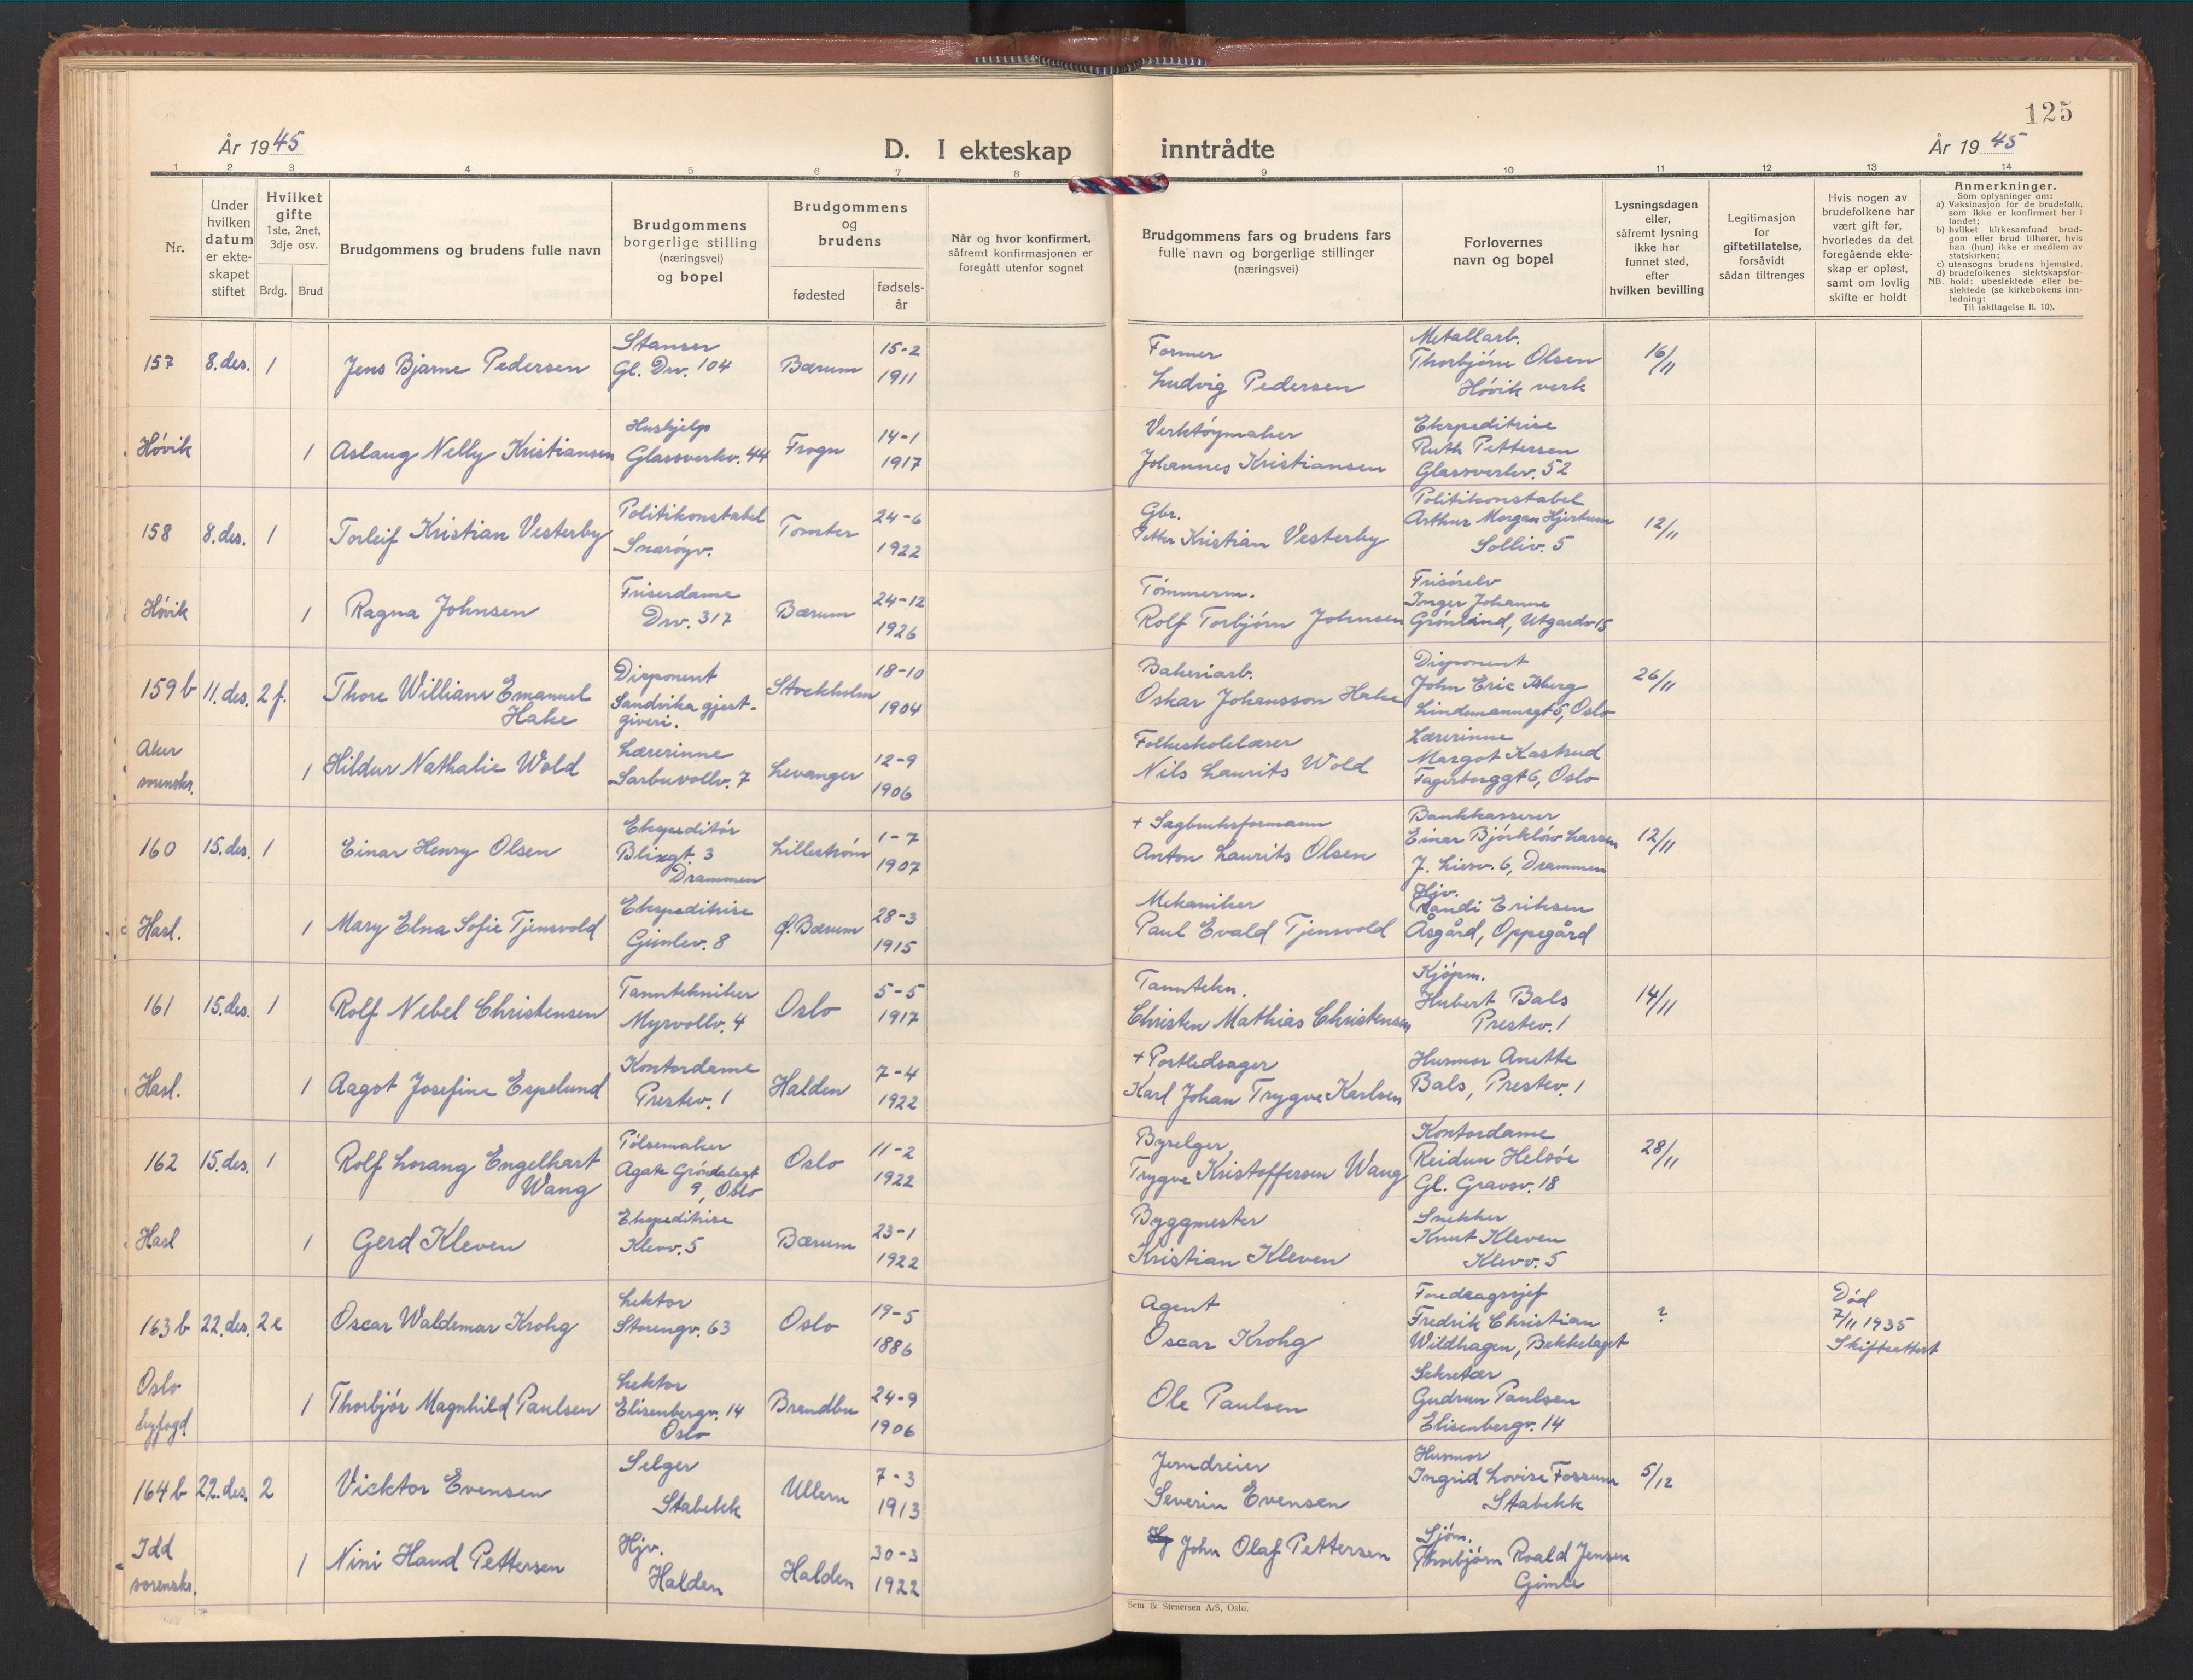 125
År 1945
D. I ekteskap inntrådte
År 1945
1 2 3 4 5 6 7 8 9 10 11 12 13 14
Nr.
Under hvilken datum er ekte-skapet stiftet
Hvilket gifte 1ste, 2net, 3dje osv.
Brdg. Brud
Brudgommens og brudens fulle navn
Brudgommens borgerlige stilling (næringsvei) og bopel
Brudgommens og brudens
fødested
fødsels-år
Når og hvor konfirmert, såfremt konfirmasjonen er foregått utenfor sognet
Brudgommens fars og brudens fars fulle navn og borgerlige stillinger (næringsvei)
Forlovernes navn og bopel
Lysningsdagen eller, såfremt lysning ikke har funnet sted, efter hvilken bevilling
Legitimasjon for giftetillatelse, forsåvidt sådan tiltrenges
Hvis nogen av brudefolkene har vært gift før, hvorledes da det foregående ekte-skap er opløst, samt om lovlig skifte er holdt
Anmerkninger.
Som oplysninger om:
a) Vaksinasjon for de brudefolk, som ikke er konfirmert her i landet;
b) hvilket kirkesamfund brud-gom eller brud tilhører, hvis han (hun) ikke er medlem av statskirken;
c) utensogns brudens hjemsted.
d) brudefolkenes slektskapsfor-hold: ubeslektede eller be-slektede (se kirkebokens inn-ledning:
NB.
Til iakttagelse II. 10).
157 8. des. 1 Jens Bjarne Pedersen Stanser Gl. Drv. 104 Bærum 15-2 1911 Former Ludvig Pedersen Metallarb. Thorbjørn Olsen Høvik verk 16/11
Høvik 1 Aslaug Nelly Kristiansen Hushjelp Glassverkv. 44 Frogn 14-1 1917 Verktøymaker Johannes Kristiansen Ekspeditrise Ruth Pettersen Glassverkv. 52
158 8. des. 1 Torleif Kristian Vesterby Politikonstabel Snarøyv. Tomter 24-6 1922 Gbr. Petter Kristian Vesterby Politikonstabel Arthur Morgan Hjertum Solliv. 5 12/11
Høvik 1 Ragna Johnsen Friserdame Drv. 317 Bærum 24-12 1926 Tømmerm. Rolf Torbjørn Johnsen Frisørelv Inger Johanne Grønland, Utgardv 15
159 b 11. des. 2 f. Thore William Emanuel Hake Disponent Sandvika gjest-giveri. Stockholm 18-10 1904 Bakeriarb. Oskar Johansson Hake Disponent John Eric Isberg Lindemannsgt 5, Oslo 26/11
Aker sorenskr. 1 Hildur Nathalie Wold Lærerinne Sarbuvollv. 7 Levanger 12-9 1906 Folkeskolelærer Nils Laurits Wold Lærerinne Margot Kastrud Fagerborggt 6, Oslo
160 15. des. 1 Einar Henry Olsen Ekspeditør Blixgt. 3 Drammen Lillestrøm 1-7 1907 + Sagbruksformann Anton Laurits Olsen Bankkasserer Einar Bjørkløv Larsen J. Liersv. 6, Drammen 12/11
Hasl. 1 Mary Elna Sofie Tjensvold Ekspeditrise Gimlev. 8 Ø. Bærum 28-3 1915 Mekaniker Paul Evald Tjensvold Hjv. Randi Eriksen Åsgård, Oppegård
161 15. des. 1 Rolf Nebel Christensen Tanntekniker Myrvollv. 4 Oslo 5-5 1917 Tanntekn. Christen Mathias Christensen Kjøpm. Hubert Bals Prestev. 1 14/11
Hasl. 1 Aagot Josefine Espelund Kontordame Prestev. 1 Halden 7-4 1922 + Postledsager Karl Johan Trygve Karlsen Husmor Anette Bals, Prestev. 1
162 15. des. 1 Rolf Lorang Engelhart Wang Pølsemaker Agate Grøndalsgt 9, Oslo Oslo 11-2 1922 Byselger Trygve Kristoffersen Wang Kontordame Reidun Helsöe Gl. Gravsv. 18 28/11
Hasl 1 Gerd Kleven Ekspeditrise Klevv. 5 Bærum 23-1 1922 Byggmester Kristian Kleven Snekker Knut Kleven Klevv. 5
163 b 22. des. 2 e Oscar Waldemar Krohg Lektor Storengv. 63 Oslo 19-5 1886 Agent Oscar Krohg Foredragssjef Fredrik Christian Wildhagen, Bekkelaget ? Død 7/11 1935 Skifteattest
Oslo byfogd 1 Thorbjør Magnhild Paulsen Lektor Elisenbergv. 14 Oslo Brandbu 24-9 1906 Ole Paulsen Sekretær Gudrun Paulsen Elisenbergv. 14
164 b 22. des. 2 Vicktor Evensen Selger Stabekk Ullern 7-3 1913 Jerndreier Severin Evensen Husmor Ingrid Lovise Fossum Stabekk 5/12
Idd sorenskr. 1 Nini Haud Pettersen Hjv. Halden Halden 30-3 1922 John Olaf Pettersen Sjøm. Thorbjørn Roald Jensen Gimle
Sem & Stenersen A/S, Oslo.